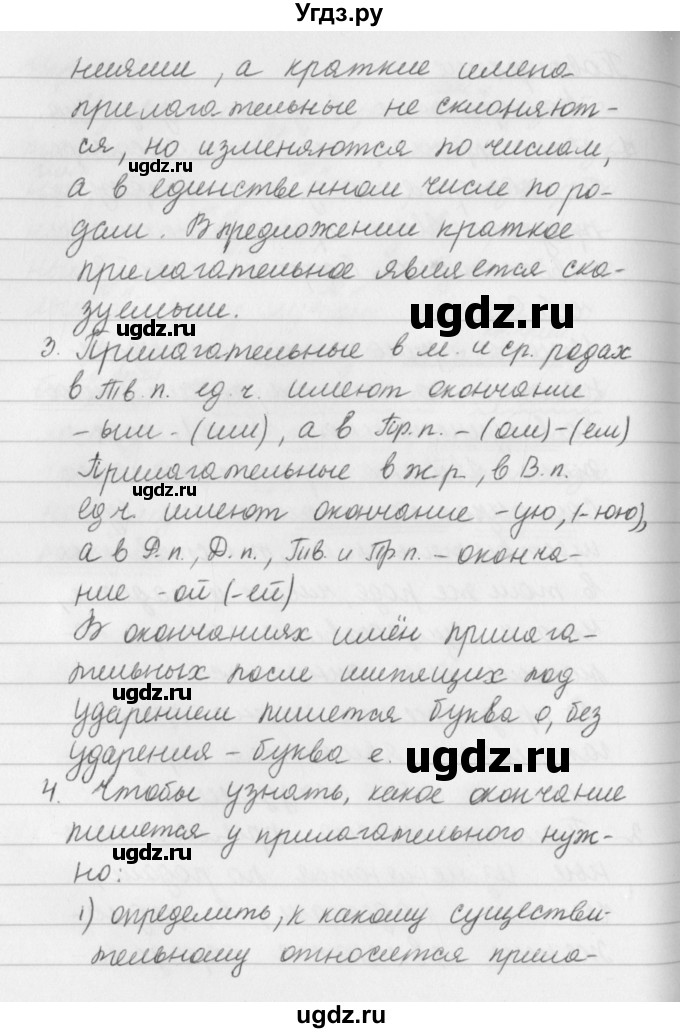 Угдз.ру
ниями, а краткие имена
прилагательные не склоняют-
ся, но изменяются по числам,
ugdz.ru
а в единственном числе по ро-
дам. В предложении краткое
прилагательное является ска-
зуемым.
ugdz.ru
ugdz.ru
3. Прилагательные в м. и ср. родах
в Тв.п. ед.ч. имеют окончание
-ым - (им), а в Пр.п. - (ом)-(ем)
Прилагательные в ж.р, в В.п.
ugdz.ru
ед.ч. имеют окончание -ую, (-юю),
а в Р.п., Д.п., Тв. и Пр.п. - оконча-
ние -ой (-ей)
В окончаниях имён прилага-
тельных после шипящих под
ugdz.ru
ударением пишется буква о, без
ударения - буква е.
ugdz.ru
4. Чтобы узнать, какое окончание
пишется у прилагательного нуж-
ugdz.ru
но:
1) определить, к какому существи-
тельному относится прила-
ugdz.ru